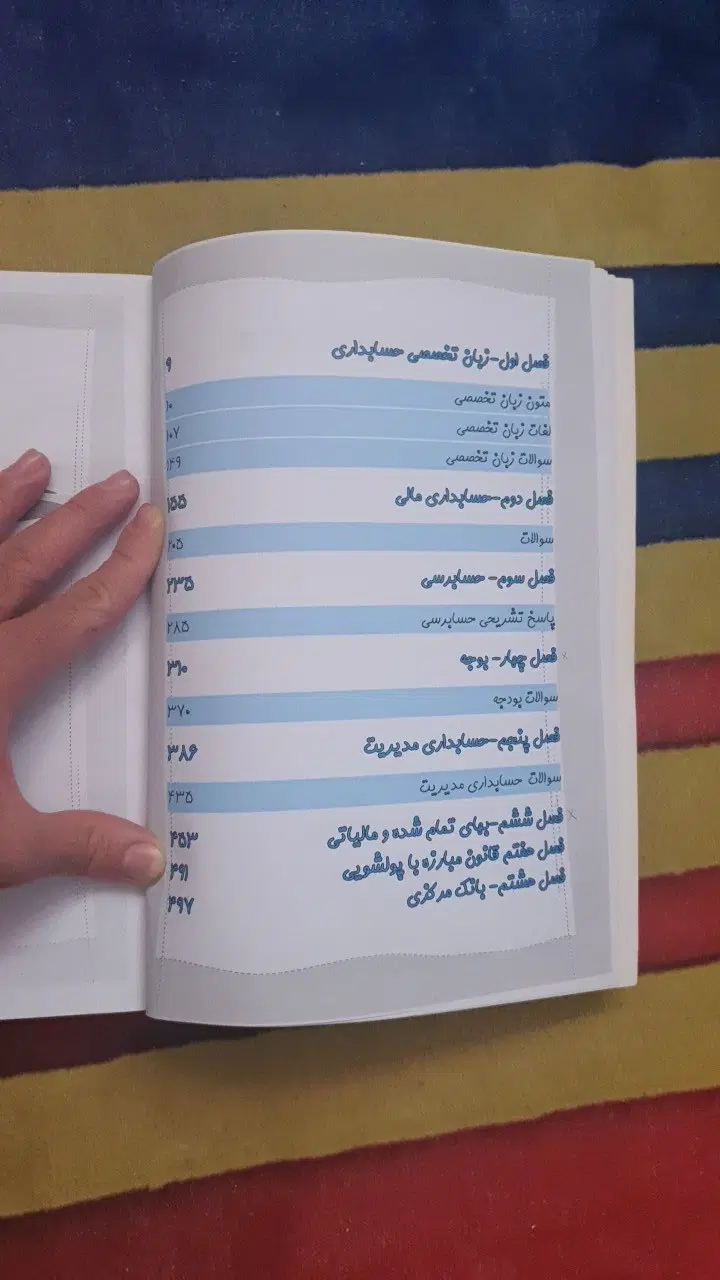 فصل اول-زبان تخصصی حسابداری ۹
متون زبان تخصصی ۱۰
لغات زبان تخصصی ۱۰۷
سوالات زبان تخصصی ۱۴۹
فصل دوم-حسابداری مالی ۱۵۵
سوالات ۲۰۵
فصل سوم- حسابرسی ۲۳۵
پاسخ تشریحی حسابرسی ۲۸۵
فصل چهار- بودجه
سوالات بودجه ۳۷۰
فصل پنجم-حسابداری مدیریت ۳۸۶
سوالات حسابداری مدیریت ۴۳۵
فصل ششم-بهای تمام شده و مالیاتی ۴۵۳
فصل هفتم قانون مبارزه با پولشویی ۴۹۱
فصل هشتم- بانک مرکزی ۴۹۷